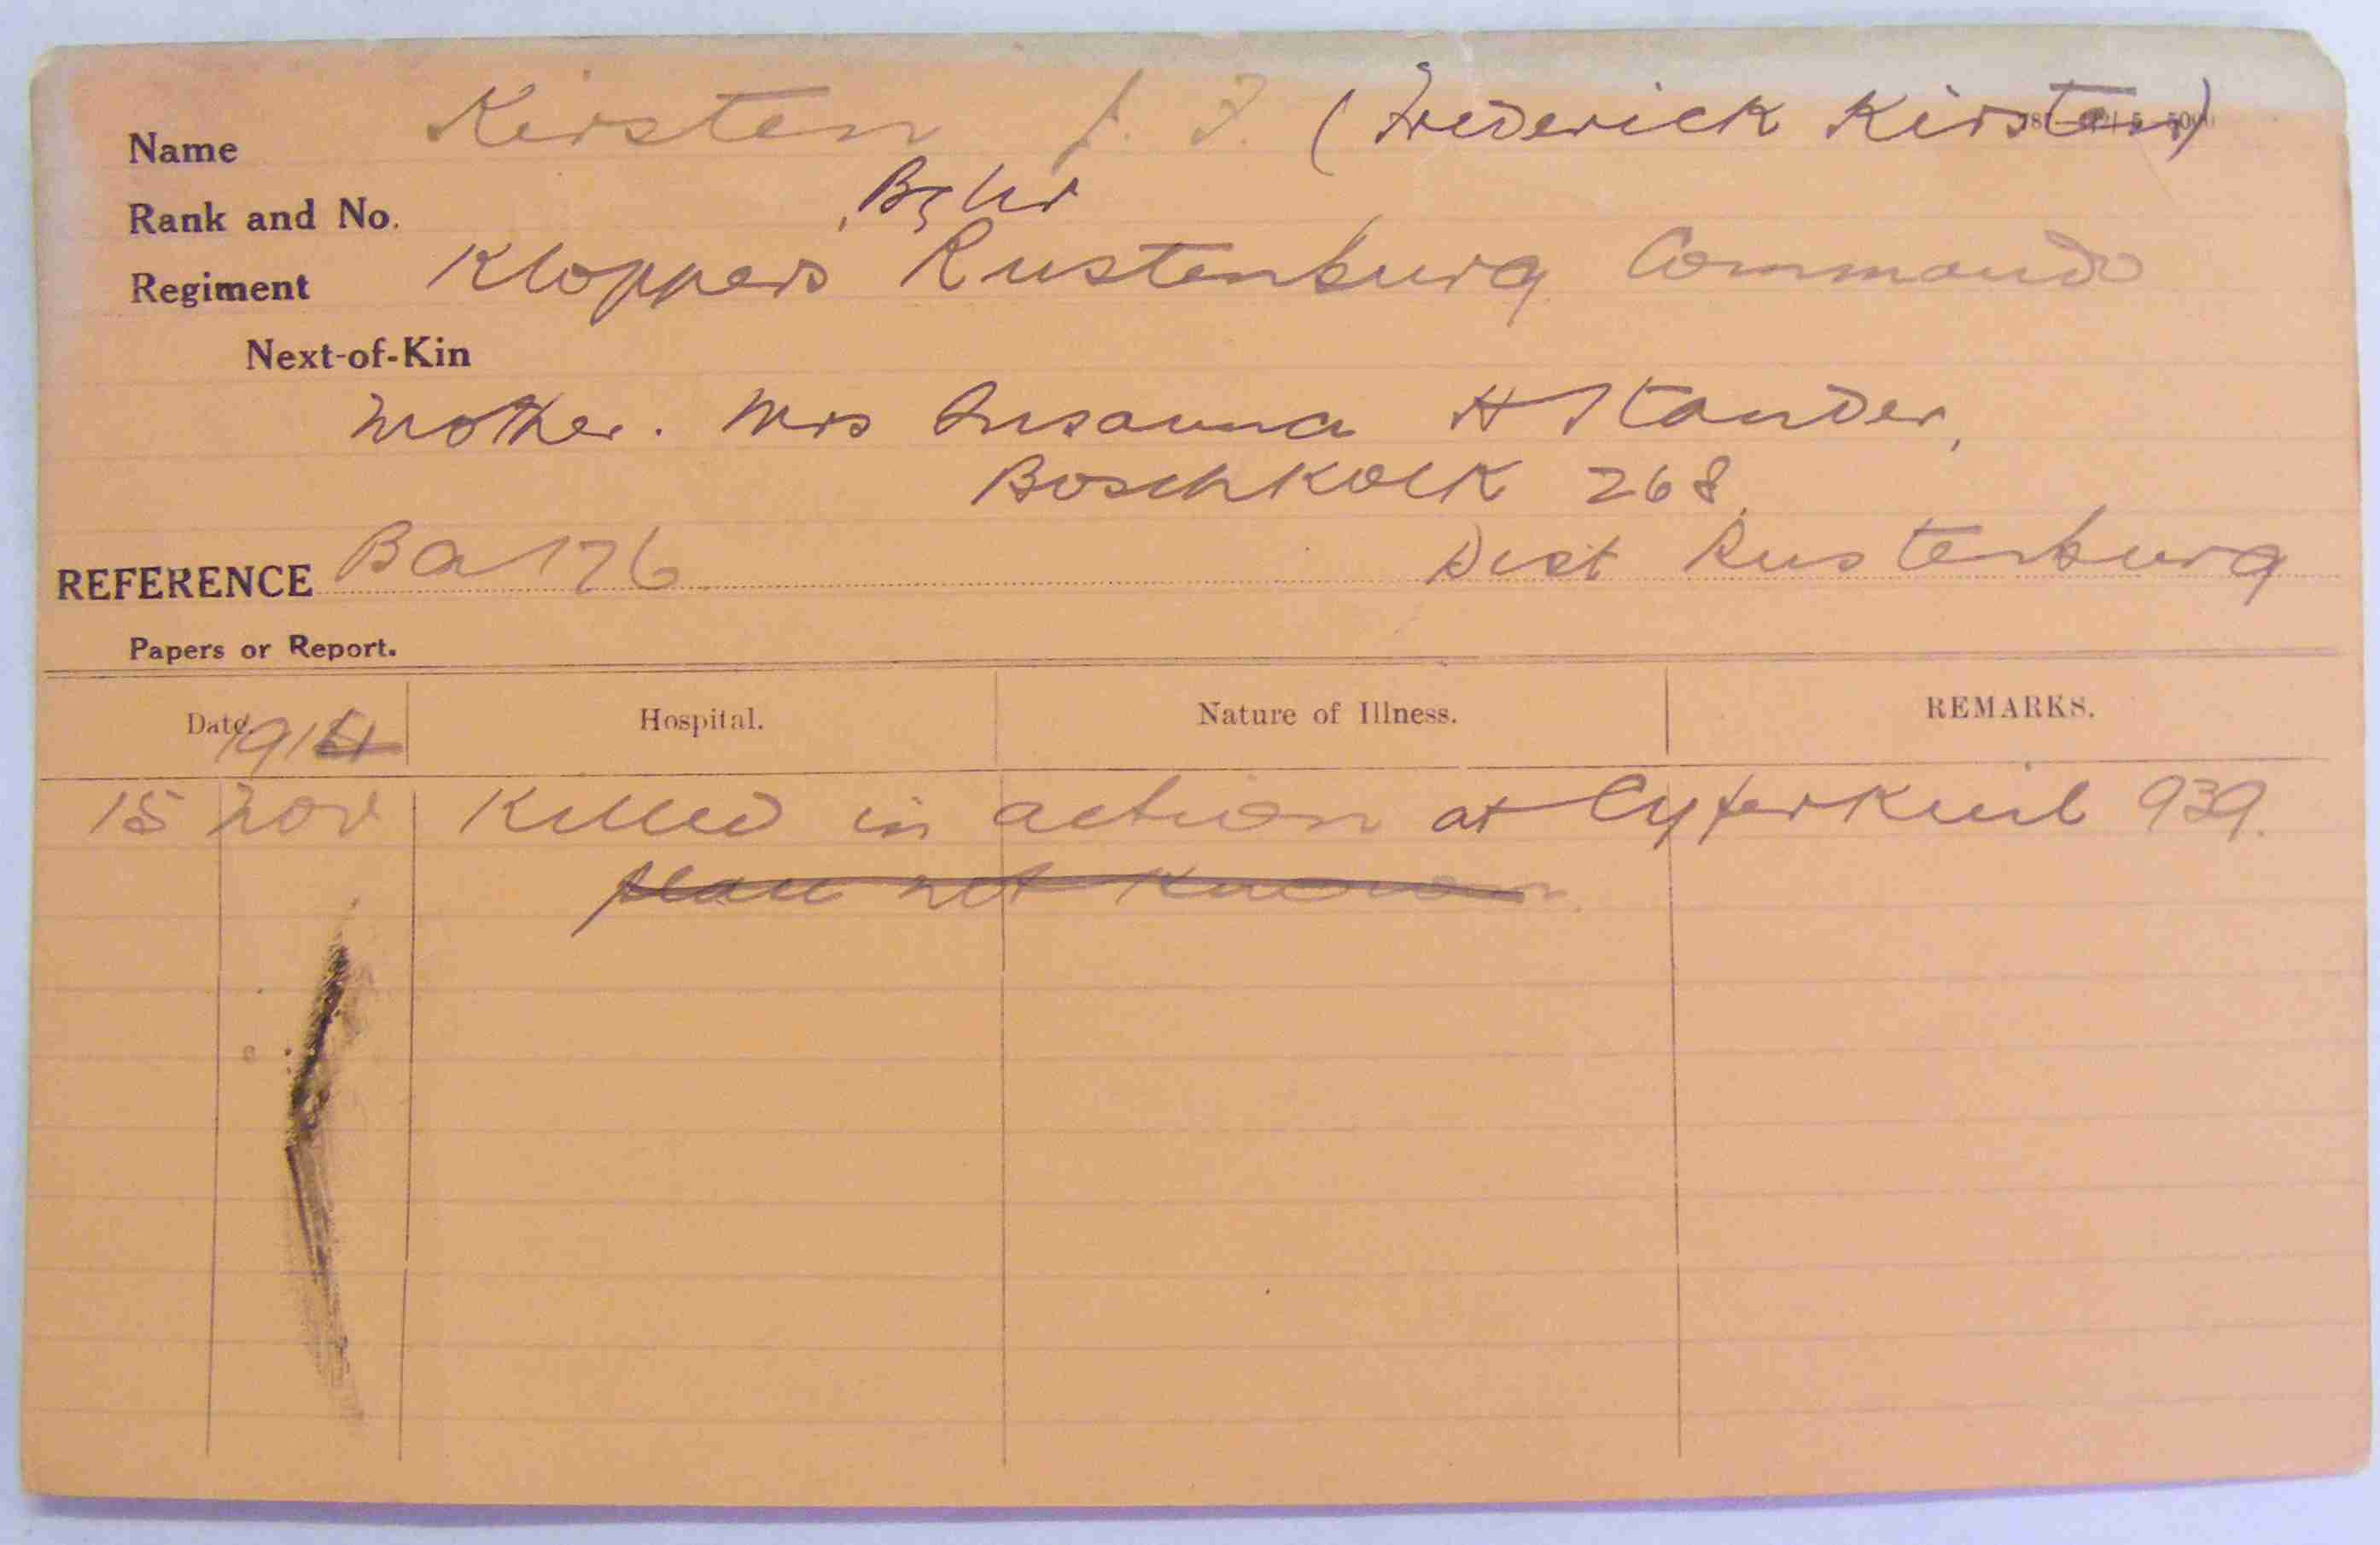 Name Kirsten J. F. (Frederick Kirsten)
Rank and No. Bghr
Regiment Kloppers Rustenburg Commando
Next-of-Kin
Mother. Mrs Susanna H Stander,
Boschkolk 268,
REFERENCE Ba 176 Dist Rustenburg
Papers or Report.
Date. 1914 Hospital. Nature of Illness. REMARKS.
15 Nov Killed in action at Cyferkuil 939.
place not known.